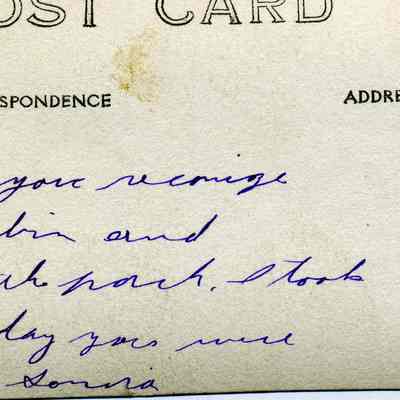 OST CARD
SPONDENCE
ADDRE
you reconige
bin and
porch. I took
day you were